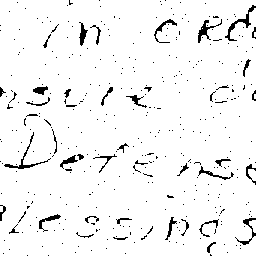 in orde
nsure do
Defense
lessings